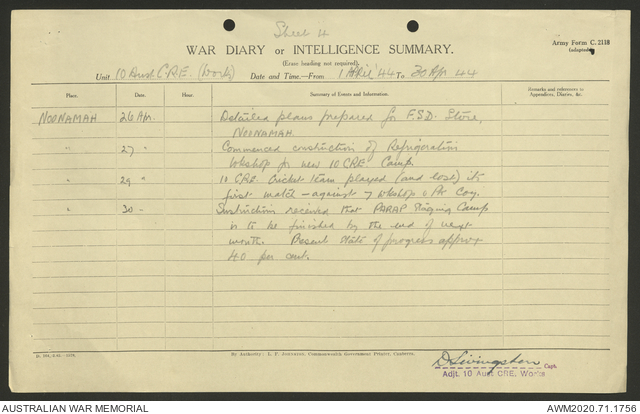 Sheet 4
Army Form C. 2118
(adapted)
WAR DIARY or INTELLIGENCE SUMMARY.
(Erase heading not required).
Unit 10 Aust. C.R.E. (Works) Date and Time—From 1 April '44 To 30 Apr 44
Place. Date. Hour. Summary of Events and Information. Remarks and references to
Appendices, Diaries, &c.
NOONAMAH 26 Apr. Detailed plans prepared for F.S.D. Store,
NOONAMAH.
" 27 " Commenced construction of Refrigeration
Wkshop for new 10 CRE. Camp.
" 29 " 10 CRE Cricket team played (and lost) its
first match - against 7 Wkshop & Pk Coy.
" 30 - Instruction received that PARAP Staging Camp
is to be finished by the end of next
month. Present state of progress approx
40 per cent.
By Authority: L. F. Johnston, Commonwealth Government Printer, Canberra.
D Livingston Capt.
Adjt. 10 Aust CRE, Works
AUSTRALIAN WAR MEMORIAL
AWM2020.71.1756